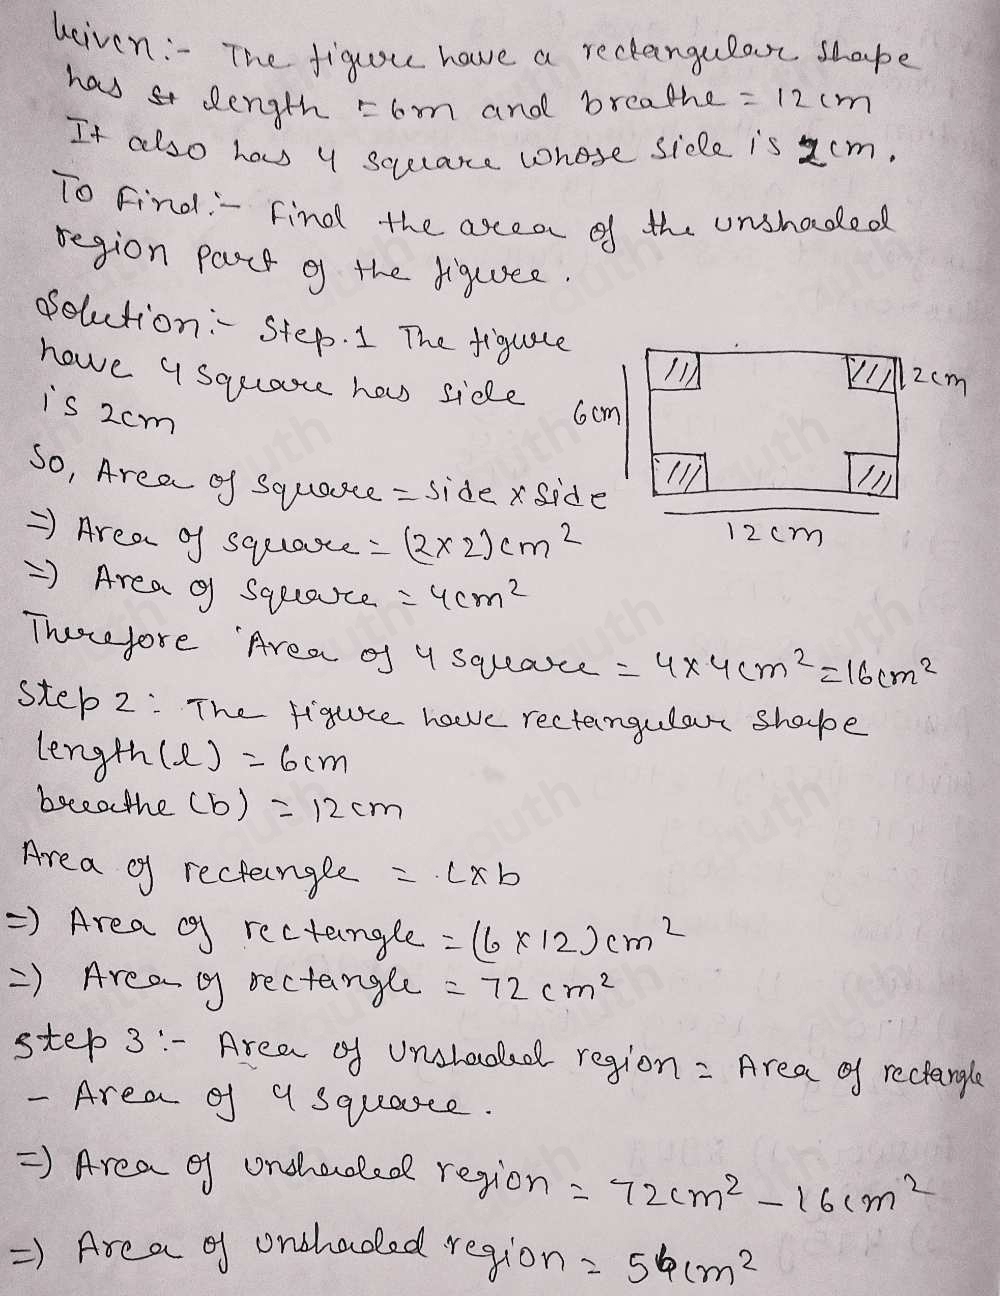 Given:- The figure have a rectangular shape
has length = 6m and breathe = 12cm
It also has 4 square whose side is 2cm.
To Find:- Find the area of the unshaded
region part of the figure.
Solution:- Step.1 The figure
have 4 square has side
is 2cm
6cm
2cm
12cm
So, Area of square = side x side
=) Area of square = (2x2)cm²
=) Area of square = 4cm²
Therefore Area of 4 square = 4x4cm² = 16cm²
Step 2: The figure have rectangular shape
length(l) = 6cm
breathe (b) = 12cm
Area of rectangle = Lxb
=) Area of rectangle = (6x12)cm²
=) Area of rectangle = 72cm²
step 3:- Area of unshaded region = Area of rectangle
- Area of 4 square.
=) Area of unshaded region = 72cm² - 16cm²
=) Area of unshaded region = 56cm²